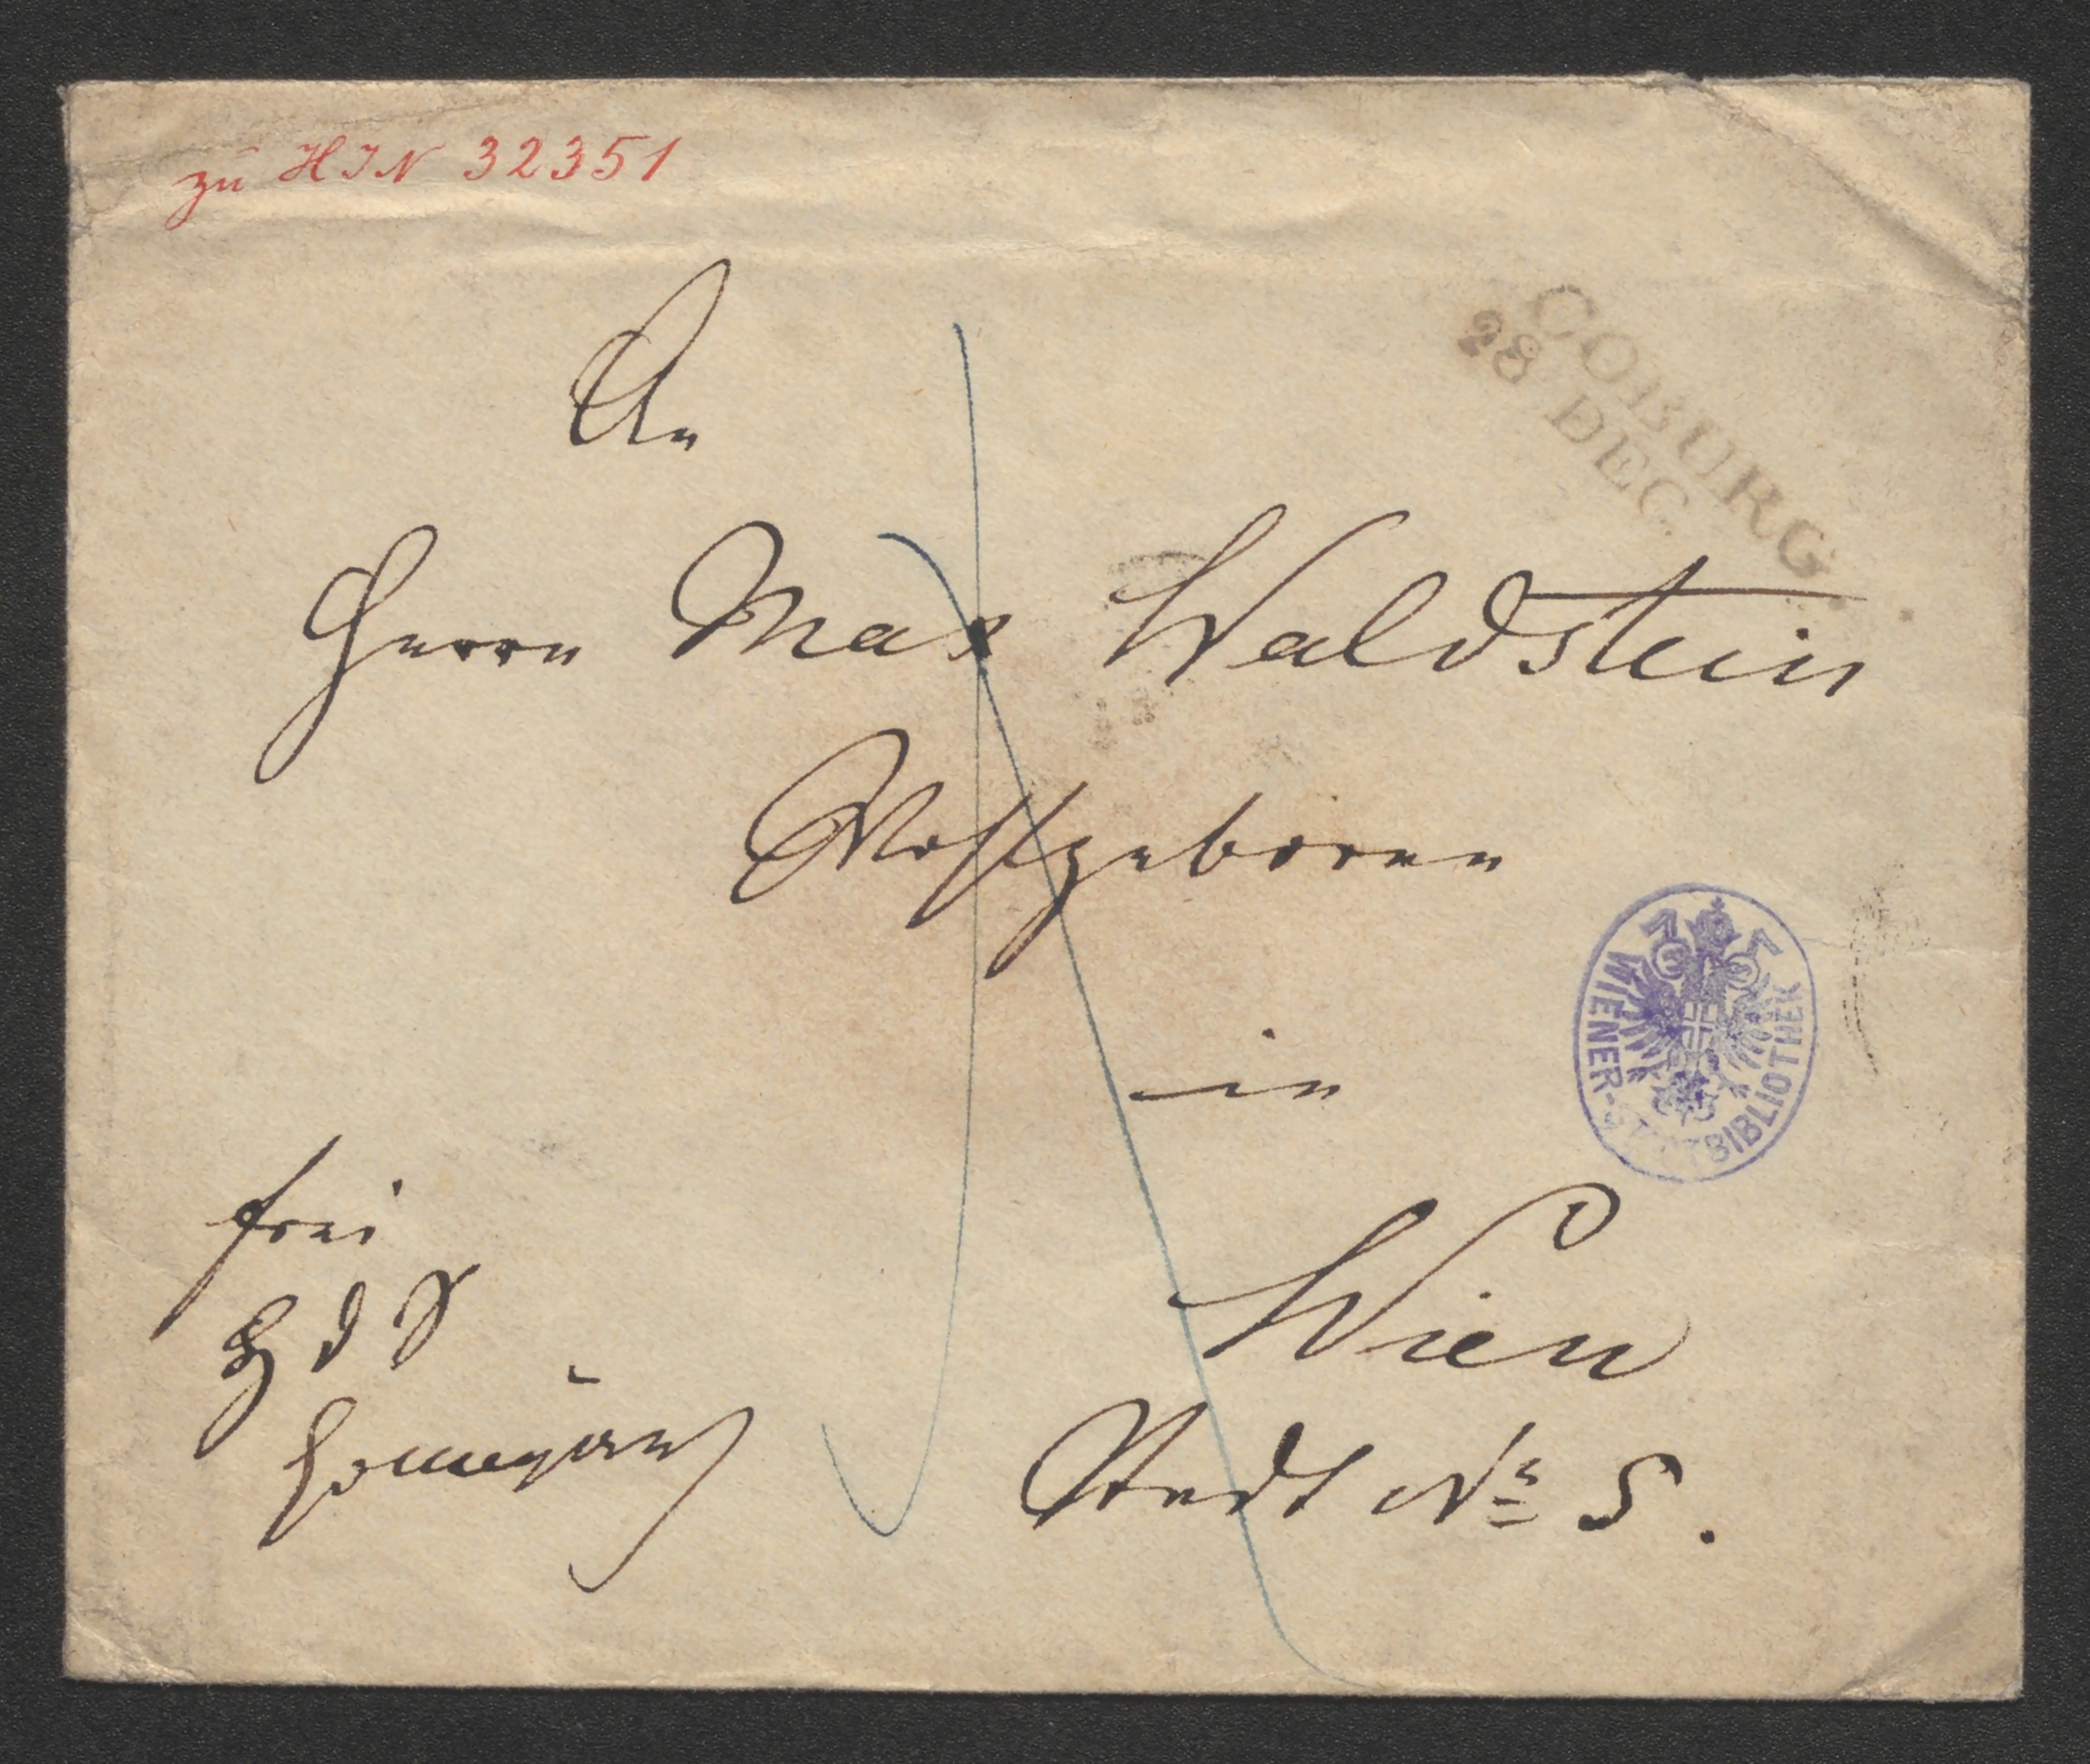 zu HIN 32351
COBURG
28 DEC
An
Herrn Max Waldstein
Wohlgeboren
in
Wien
Stadt No 5.
frei
H d S
WIENER-STADTBIBLIOTHEK